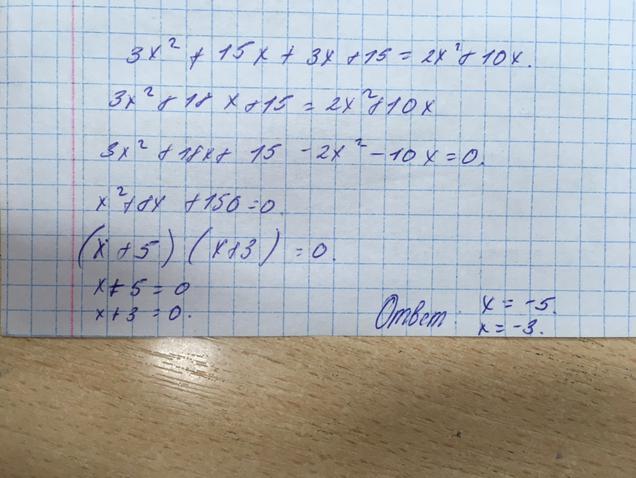 3x² + 15x + 3x + 15 = 2x² + 10x.
3x² + 18x + 15 = 2x² + 10x
3x² + 18x + 15 - 2x² - 10x = 0.
x² + 8x + 150 = 0.
(x + 5) (x + 3) = 0.
x + 5 = 0
x + 3 = 0.
Ответ: x = -5.
x = -3.